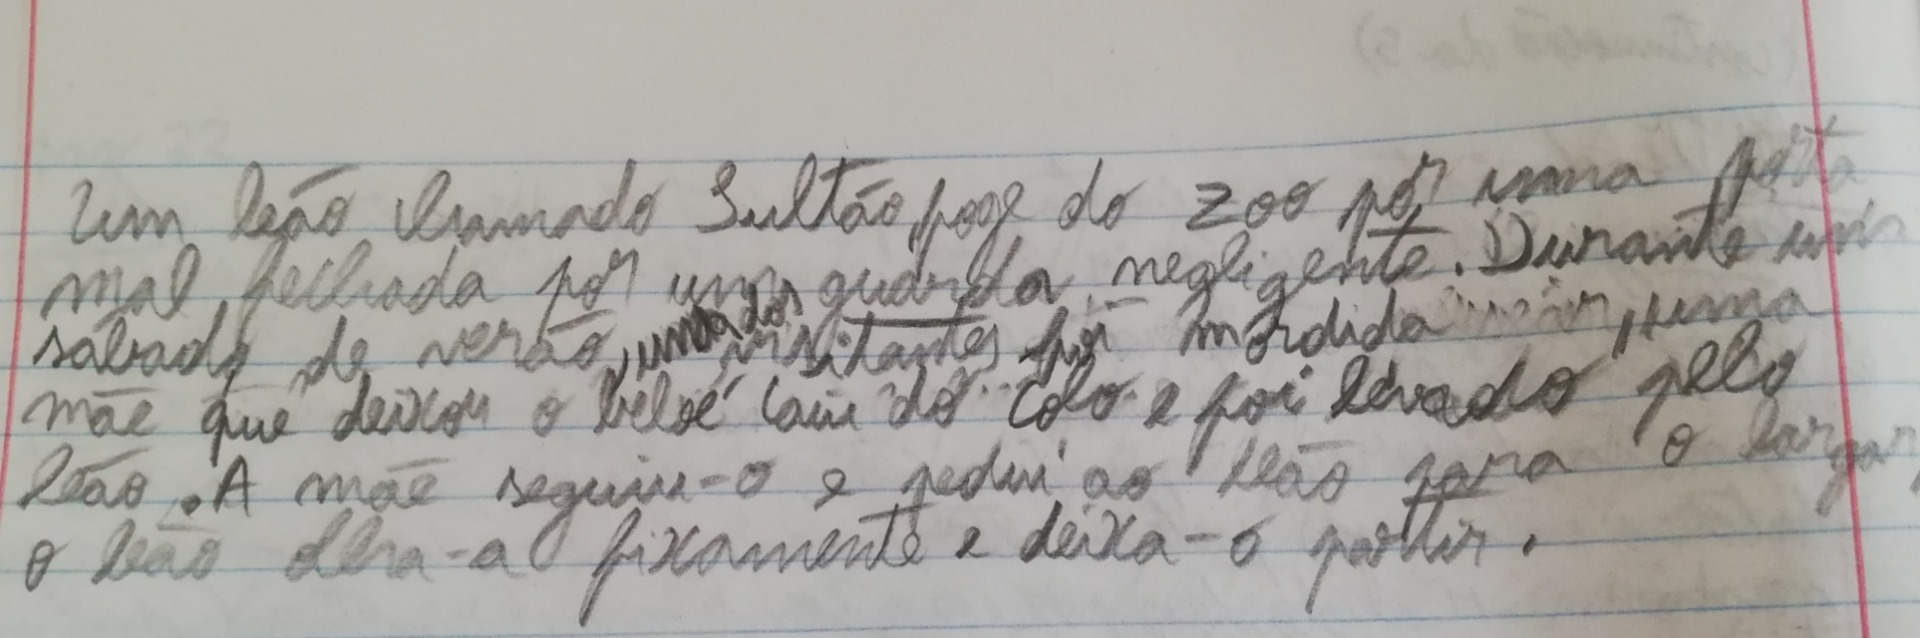 Um leão chamado Sultão, foge do zoo por uma porta
mal fechada por um guarda negligente. Durante um
sábado de verão, um dos visitantes foi mordida, uma
mãe que deixou o bebé cair do colo e foi levado pelo
leão. A mãe seguiu-o e pediu ao leão para o largar,
o leão olha-a fixamente e deixa-o partir.